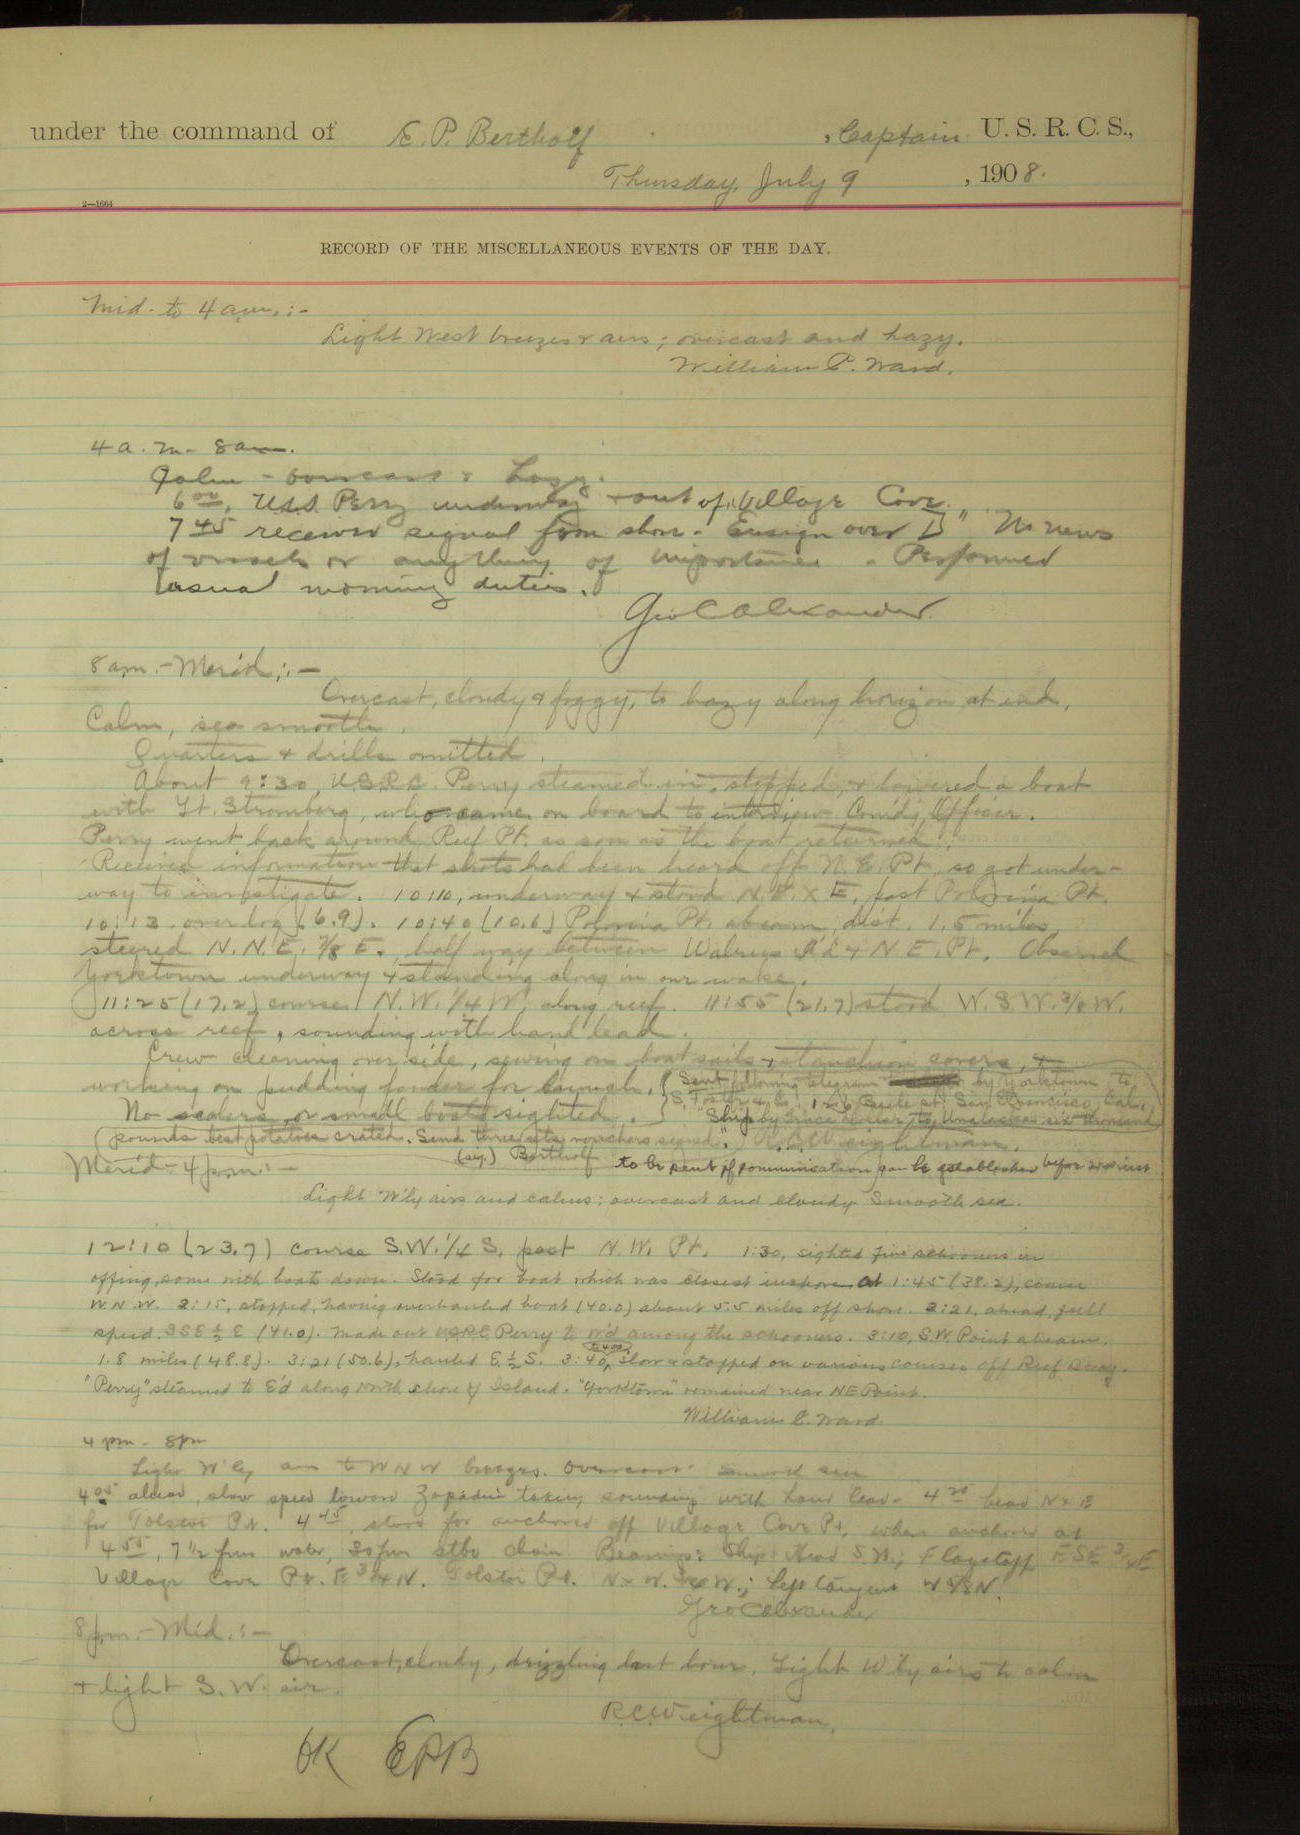 under the command of E. P. Bertholf , Captain U. S. R. C. S.,
Thursday, July 9 , 1908.
2—1664
RECORD OF THE MISCELLANEOUS EVENTS OF THE DAY.
Mid. to 4 a.m.:-
Light West breezes & airs; overcast and hazy.
William E. Ward.
4 a. m - 8 am.
Calm - overcast & hazy.
6 00, U.S.S. Perry underway & out of Village Cove.
7 45 received signal from shore - Ensign over D " No news
of vessels or anything of importance - Performed
usual morning duties.
Geo C Alexander.
8 am.- Merid.:-
Overcast, cloudy & foggy, to hazy along horizon at end.
Calm, sea smooth.
Quarters & drills omitted.
About 9:30, U.S.R.C. Perry steamed in, stopped, & lowered a boat
with Lt. Stromberg, who came on board to interview Com'd'g Officer.
Perry went back around Reef Pt. as soon as the boat returned.
Received information that shots had been heard off N. E. Pt. so got under-
way to investigate. 10:10, underway & stood N. E. X E, past Polovina Pt.
10:13 over log (6.9). 10:40 (10.6) Polovina Pt. abeam, dist. 1.5 miles
steered N. N. E. 7/8 E., half way between Walrus I'd & N. E. Pt. Observed
Yorktown underway & standing along in our wake.
11:25 (17.2) course N. W. 1/4 W. along reef. 11:55 (21.7) stood W. S. W. 3/8 W.
across reef, sounding with hand lead.
Crew cleaning over side, sewing on boat sails & stanchion covers, &
working on pudding fender for launch. { Sent following telegram by Yorktown to
No sealers or small boats sighted. } S. Foster & Co., 126 Beale st. San Francisco, Cal.,
"Ship by to Unalaska six thousand
pounds best potatoes crated. Send three sets vouchers signed." R. C. Weightman.
(sig.) Bertholf to be sent if communication can be established before
Merid - 4 p.m.:-
Light W'ly airs and calms; overcast and cloudy. Smooth sea.
12:10 (23.7) course S. W. 1/4 S. past N. W. Pt. 1:30, sighted five schooners in
offing, some with boats down. Stood for boat which was closest inshore at 1:45 (38.2), course
W. N. W. 2:15, stopped, having overhauled boat (40.0) about 5.5 miles off shore. 2:21, ahead, full
speed, SSE 1/2 E (41.0). Made out USRC Perry to N'd among the schooners. 3:10, S.W. Point abeam.
1.8 miles (48.8). 3:21 (50.6), hauled E. 1/2 S. 3:40 to 4:00, slow & stopped on various courses off Reef
"Perry" steamed to E'd along North shore of Island. "Yorktown" remained near NE Point.
William E. Ward
4 pm - 8 pm
Light W'ly airs to WNW breezes. Overcast. Smooth sea
4 05 ahead, slow speed toward Zapadni taking sounding with hand lead - 4 20 head N x E
for Tolstoi Pt. 4 45, stood for anchorage off Village Cove Pt, where anchored at
4 55, 7 1/2 fms water, 30 fms stbd chain Bearings: Ship Head S W; Flagstaff ESE 3/4 E
Village Cove Pt. E 3/4 N. Tolstoi Pt. N x W. 3/4 W.; left tangent W 5/8 N.
Geo C Alexander
8 p.m.- Mid.:-
Overcast, cloudy, drizzling last hour. Light W'ly airs to calm
& light S. W. air.
R. C. Weightman.
OK EPB